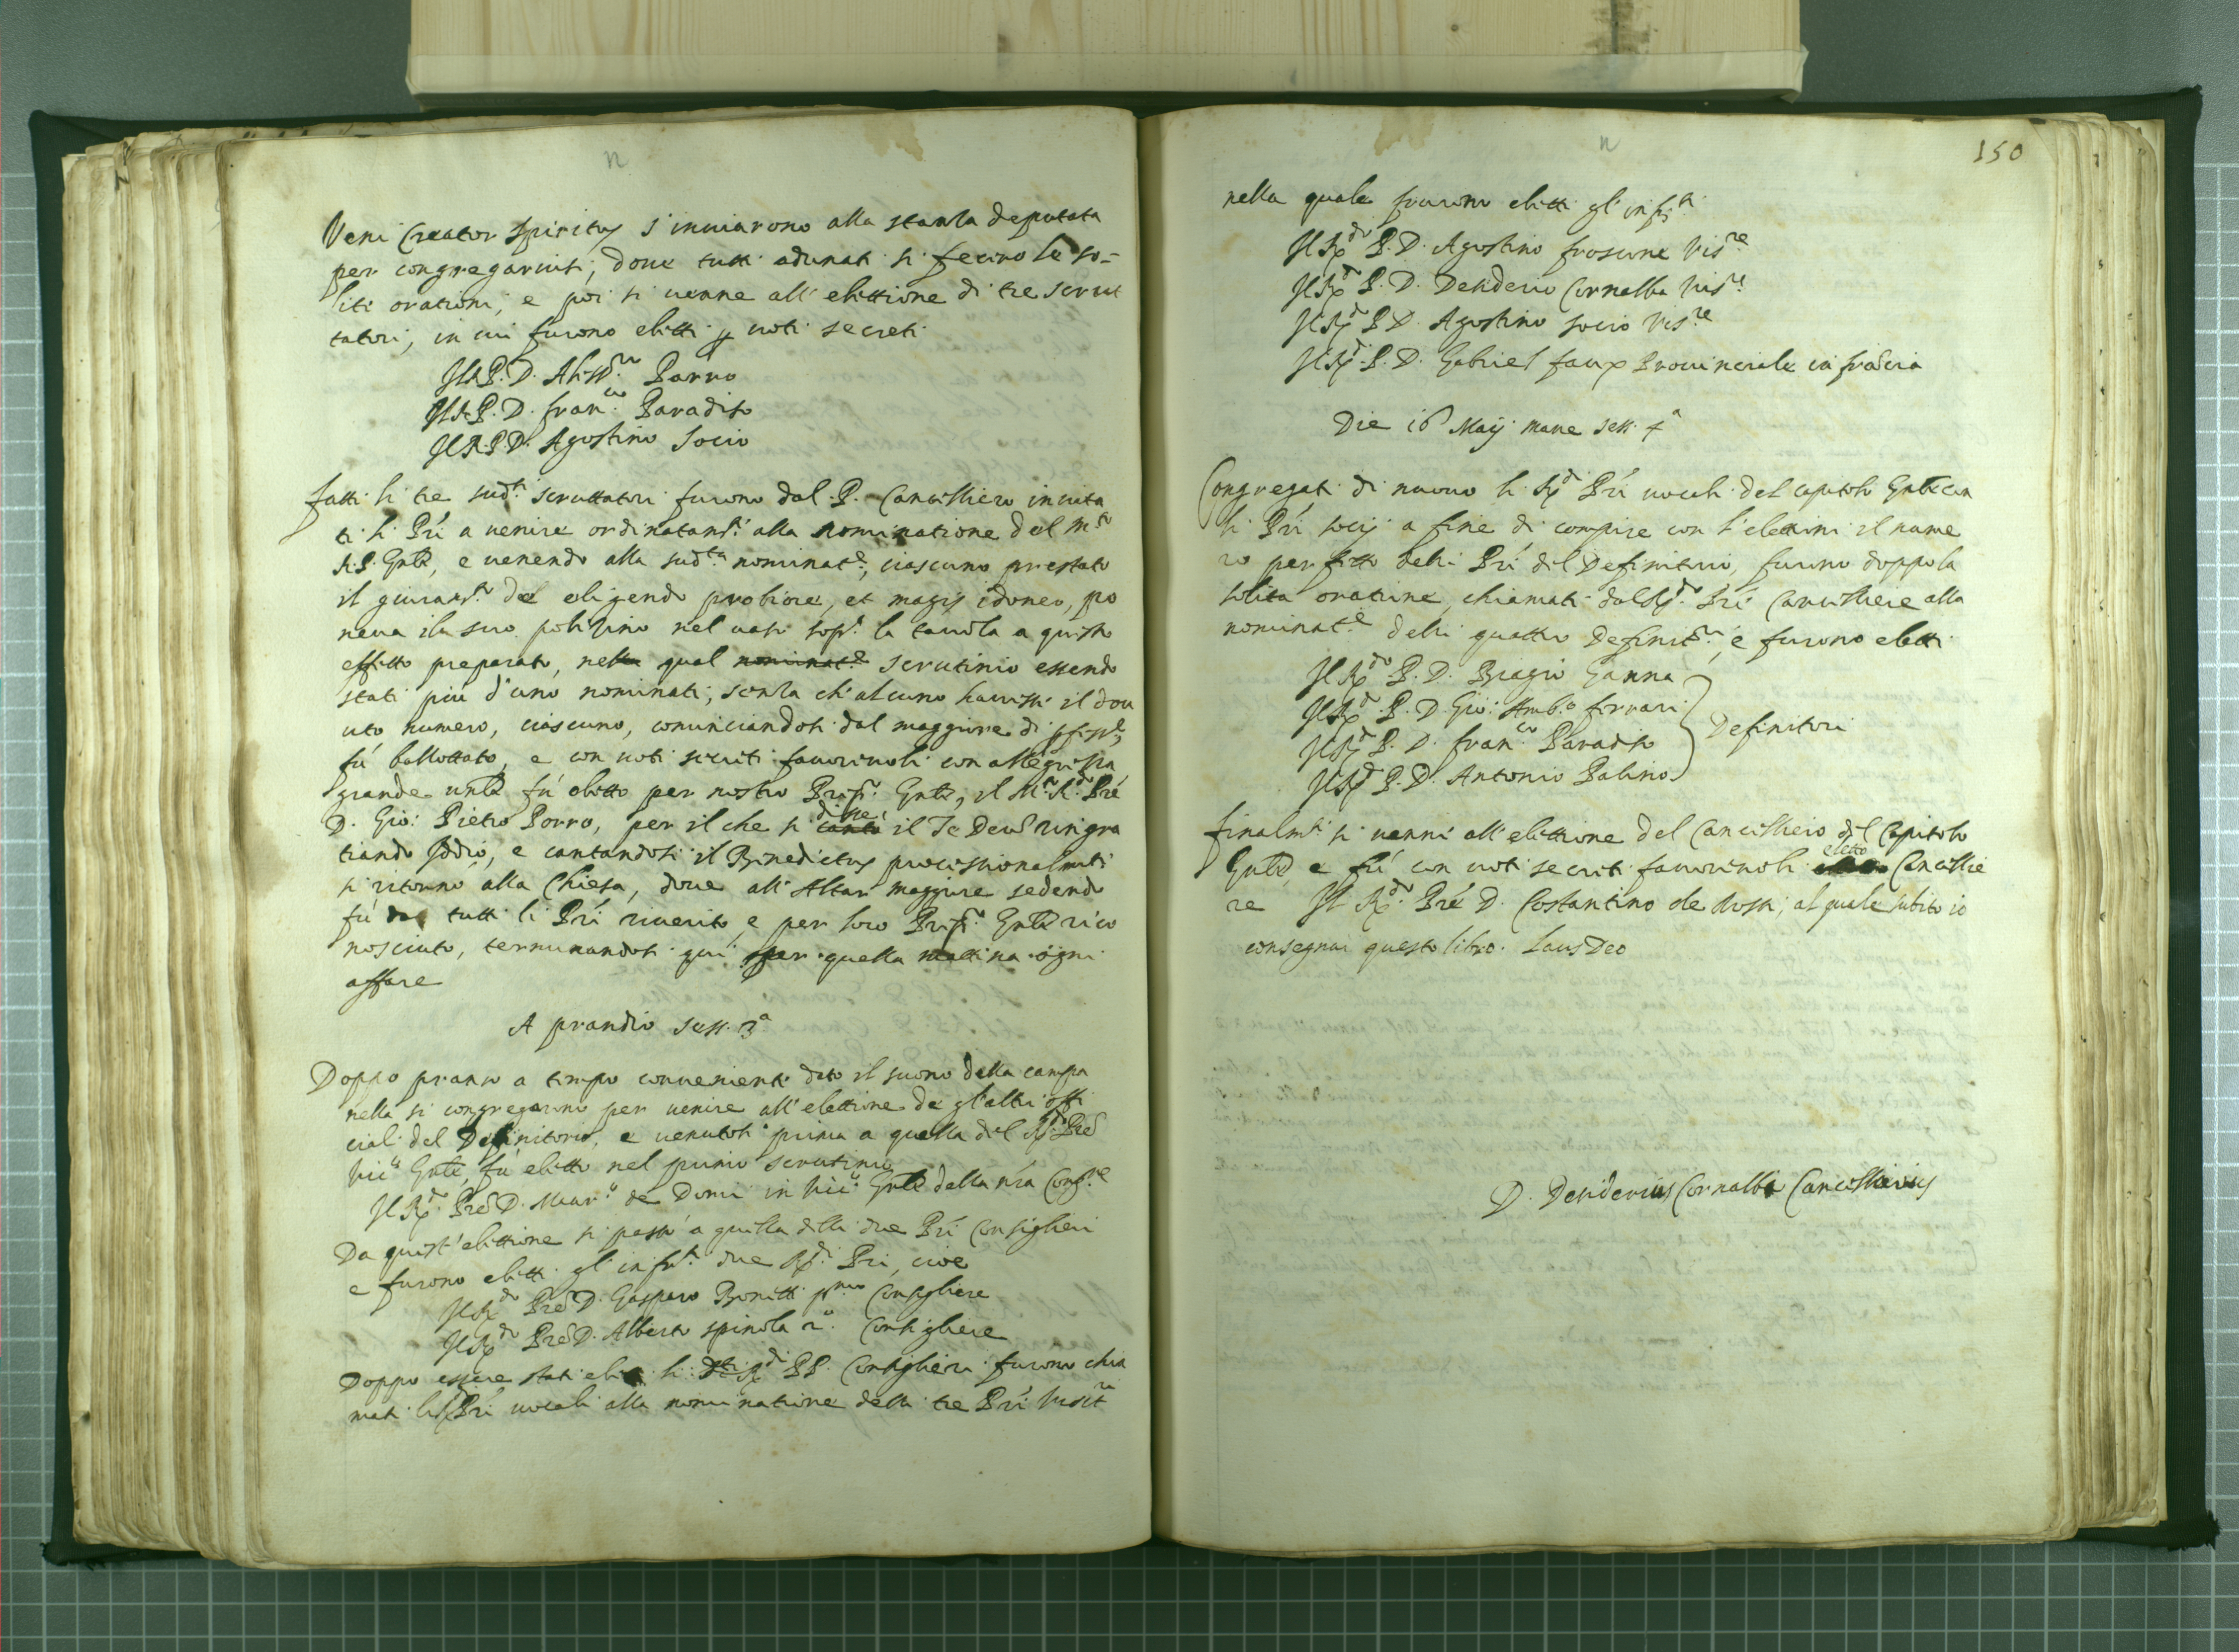 n
Veni Creator Spiritus s'inviarono alla stanza deputata
per congregarvisi, doue tutti adunati si fecero le so=
liti orationi, e poi si uenne all'elettione di tre scrut
tatori, in cui furono eletti p uoti secreti
Il R.P. D. Aless.ro Porro
Il R.P. D. Fran.co Paradiso
Il R.P.D. Agostino Socio
Fatti li tre sud.ti scruttatori furono dal P. Cancelliero inuita
ti li Pri a uenire ordinatam.te alla nominatione del M.to
R.P. Gnle, e uenendo alla sud.ta nominat.e, ciascuno prestato
il giuram.to de eligendo probiore, et magis idoneo, po
neua il suo polizino nel uaso sop.a la tauola a questo
effetto preparato, nella qual nominat.e scrutinio essendo
stati più d'uno nominati, senza ch'alcuno hauesse il dou
uto numero, ciascuno, cominciandosi dal maggiore di
fù ballottato, e con uoti secreti fauoreuoli con allegrezza
grande unle fù eletto per nostro Prep.to Gnle, il M.to R.do Pre
D. Gio: Pietro Porro, per il che si cantò disse il Te Deum ringra
tiando Iddio, e cantandosi il Benedictus processionalmente
si ritornò alla Chiesa, doue all'Altar maggiore sedendo
fù da tutti li Pri riuerito e per loro Prep.to Gnle rico
nosciuto, terminandosi qui per quella mattina ogni
affare
A prandio sess. 3.a
Doppo pranso a tempo conueniente dato il suono della campa
nella si congregarono per uenire all'elettione de gl'altri offi
ciali del Definitorio, e uenutosi prima a quella del R.do Pre
Vic.o Gnle, fù eletto nel primo scrutinio
Il R.do Pre D. Maur.o de Domi in Vic.o Gnle della nra Cong.ne
Da quest'elettione si passò a quella delli due Pri Consiglieri
e furono eletti gl'infr.ti due R.di Pri, cioè
Il R.do Pre D. Gasparo Bonetti p.mo Consigliere
Il R.do Pre D. Alberto Spinola 2.o Consigliere
Doppo essere stati eletti li R.di PP. Consiglieri furono chia
mati li R.di Pri uocali alla nominatione delli tre Pri Visit.ri
n
150
nella quale furono eletti gl'infr.ti
Il R.do P. D. Agostino Froscone Vis.re
Il R.do P. D. Desiderio Cornalba Vis.re
Il R.do P. D. Agostino Socio Vis.re
Il R.do P. D. Gabriel Faux Prouinciale in Francia
Die 16 Maij mane sess. 4.a
Congregati di nuouo li R.di Pri uocali del capitolo Gnle con
li Pri socij a fine di compire con l'elettioni il nume
ro perfetto delli Pri del Definitorio, furono doppo la
solita oratione chiamati dal R.do Pre Cancelliere alla
nominat.e delli quattro Definit.ri, e furono eletti
Il R.do P. D. Biagio Ganna
Il R.do P. D. Gio: Amb.o Ferrari
Il R.do P. D. Fran.co Paradiso
Il R.do P. D. Antonio Palino
Definitori
Finalm.te si uenne all'elettione del Cancelliero del Capitolo
Gnle, e fù con uoti secreti fauoreuoli eletto Cancellie
re Il R.do Pre D. Costantino de Rossi, al quale subito io
consegnai questo libro. Laus Deo
D. Desiderius Cornalba Cancellarius